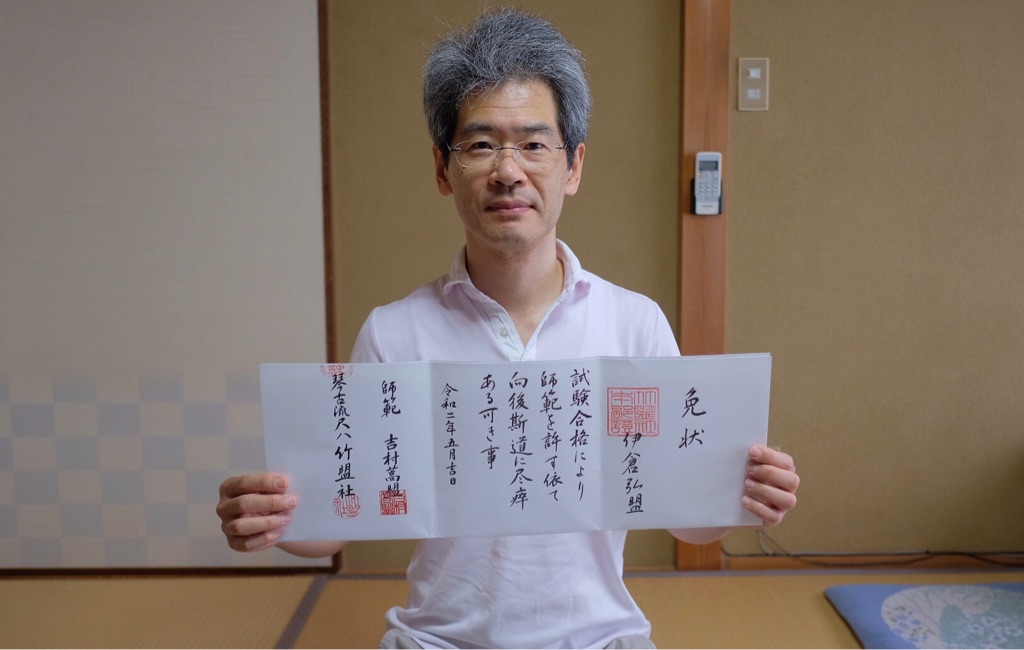 免状
伊倉弘盟
試験合格により
師範を許す依て
向後斯道に尽瘁
ある可き事
令和二年五月吉日
師範 吉村蒿盟
琴古流尺八竹盟社